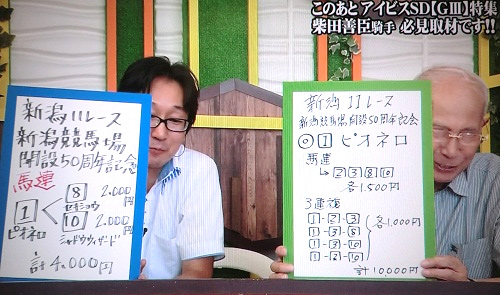 このあと アイビスSD【GⅢ】特集
柴田善臣騎手 必見取材です!!
新潟11レース
新潟競馬場
開設50周年記念
馬連
1
ピオネロ
8 2.000円
ゼキショウ
10 2.000円
シャドウウィザード
計4.000円
新潟11レース
新潟競馬場開設50周年記念
◎1 ピオネロ
馬連
→2 3 8 10
各1.500円
3連複
1-2-3
1-3-8
1-3-10
1-8-10
各1.000円
計10000円